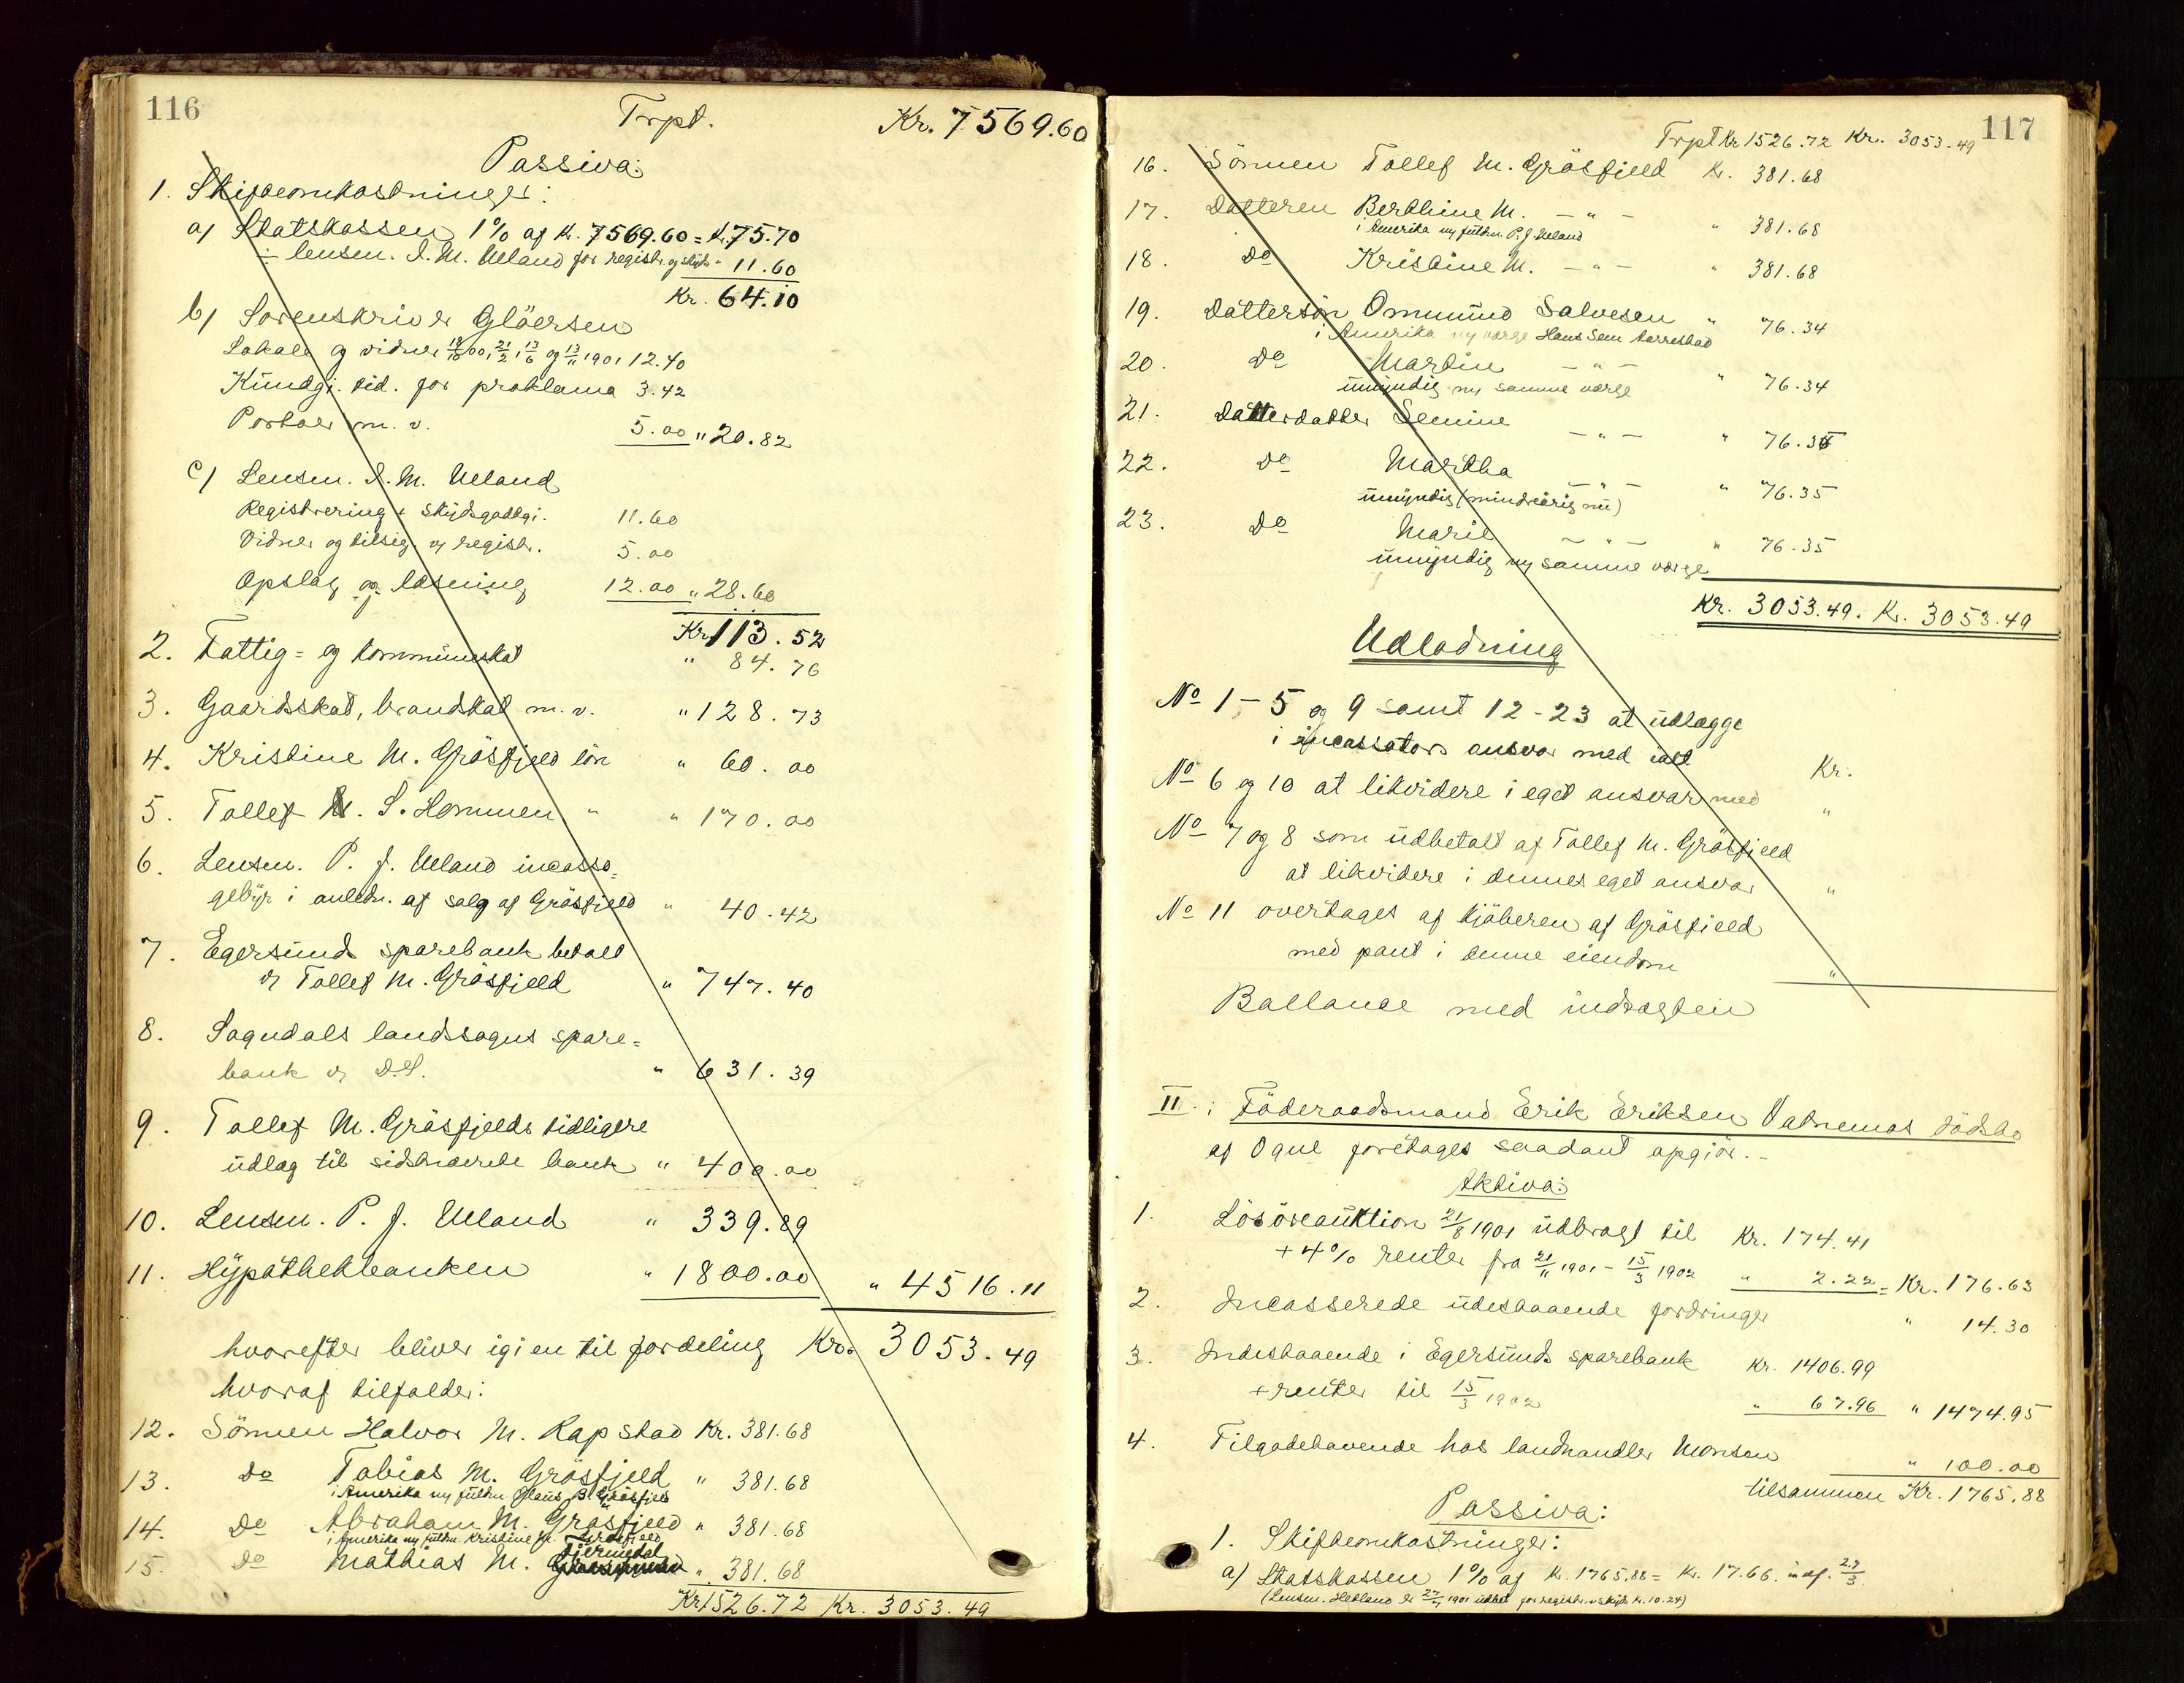 116
Trpt. Kr. 7569.60
Passiva:
1. Skifteomkostninger:
a) Statskassen 1% af Kr. 7569.60 = Kr. 75.70
÷ lensm. I. M. Ueland for registr. og skyds " 11.60
Kr. 64.10
b) Sorenskriver Glöersen
Lokale og vidner 18/10 00, 21/2, 13/6 og 13/11 1901 12.40
Kundgj. tid. for proklama 3.42
Portoer m. v. 5.00 " 20.82
c) Lensm. I. M. Ueland
Registrering + skydsgodtgj. 11.60
Vidner og tilsig. v registr. 5.00
Opslag og læsning 12.00 " 28.60
Kr 113.52
2. Fattig= og kommuneskat " 84.76
3. Gaardsskat, brandskat m. v. " 128.73
4. Kristine M. Gräsfjeld lön " 60.00
5. Tollef M. S. Hommen " " 170.00
6. Lensm. P. J. Ueland incasso=
gebyr i anledn. af salg af Gräsfjeld " 40.42
7. Egersunds sparebank betalt
v Tollef M. Gräsfjeld " 747.40
8. Sogndals landssogns spare=
bank v D.S. " 631.39
9. Tollef M. Gräsfjelds tidligere
udlæg til sidstnævnte bank " 400.00
10. Lensm. P. J. Ueland " 339.89
11. Hypothekbanken " 1800.00 " 4516.11
hvorefter bliver igjen til fordeling Kr. 3053.49
hvoraf tilfalder:
12. Sönnen Halvor M. Rapstad Kr. 381.68
13. Do Tobias M. Gräsfjeld " 381.68
i Amerika ny fuldm. Claus B. Gräsfjeld
14. Do Abraham M. Gräsfjeld " 381.68
i Amerika ny fuldm. Kristine M. Gräsfjeld
15. Do Mathias M. " 381.68
Kr 1526.72 Kr. 3053.49
117
Trpt Kr 1526.72 Kr. 3053.49
16. Sönnen Tollef M. Gräsfjeld Kr. 381.68
17. Datteren Berthine M. — " — " 381.68
i Amerika ny fuldm. P. J. Ueland
18. Do Kristine M. — " — " 381.68
19. Dattersön Ommund Salvesen " 76.34
i Amerika ny værge Hans Sem Aarrestad
20. Do Martin — " — " 76.34
umyndig ny samme værge
21. Datterdatter Semine — " — " 76.35
22. Do Martha — " — " 76.35
umyndig (mindreårig nu)
23. Do Marie — " — " 76.35
umyndig ny samme værge
Kr. 3053.49. Kr. 3053.49
Udlodning
No 1-5 og 9 samt 12-23 at udlægge
i incassators ansvar med ialt Kr.
No 6 og 10 at likvidere i eget ansvar med "
No 7 og 8 som udbetalt af Tollef M. Gräsfjeld
at likvidere i dennes eget ansvar "
No 11 overtages af kjöberen af Gräsfjeld
med pant i denne eiendom "
Ballance med indtægten
II. i Föderaadsmand Erik Eriksen Vatnemos dödsbo
af Ogne foretages saadant opgjör.-
Aktiva:
1. Lösöreauktion 21/8 1901 udbragt til Kr. 174.41
+ 4% renter fra 21/11 1901 - 15/3 1902 " 2.22 = Kr. 176.63
2. Incasserede udestaaende fordringer " 14.30
3. Indestaaende i Egersunds sparebank Kr. 1406.99
+ renter til 15/3 1902 " 67.96 " 1474.95
4. Tilgodehavende hos landhandler Monsen " 100.00
tilsammen Kr. 1765.88
Passiva:
1. Skifteomkostninger:
a) Statskassen 1% af Kr. 1765.88 = Kr. 17.66. indf. 27/3.
(Lensm. Hetland er 27/11 1901 udbet for registr. & skyds Kr. 10.24)